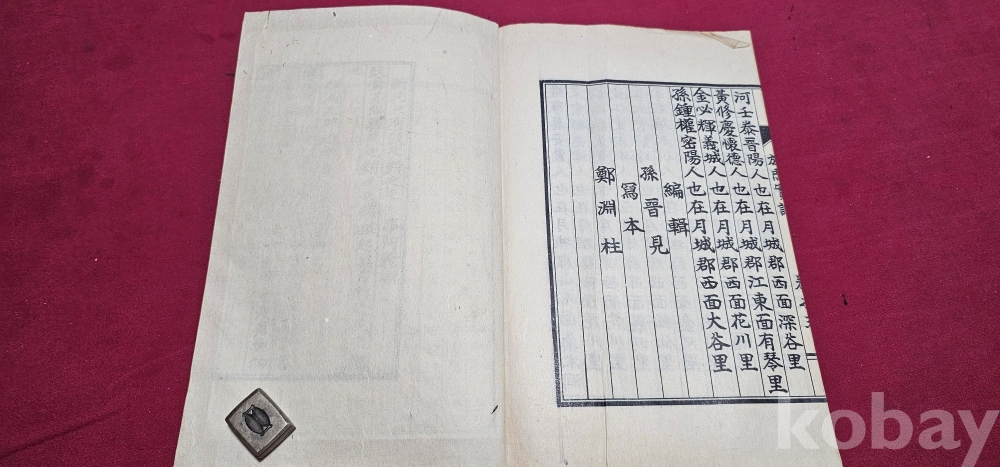 河壬泰晋陽人也在月城郡西面深谷里
黃修慶懷德人也在月城郡江東面有琴里
金必輝義城人也在月城郡西面花川里
孫鍾權密陽人也在月城郡西面大谷里
編輯
孫晋見
冩本
鄭淵柱
kobay